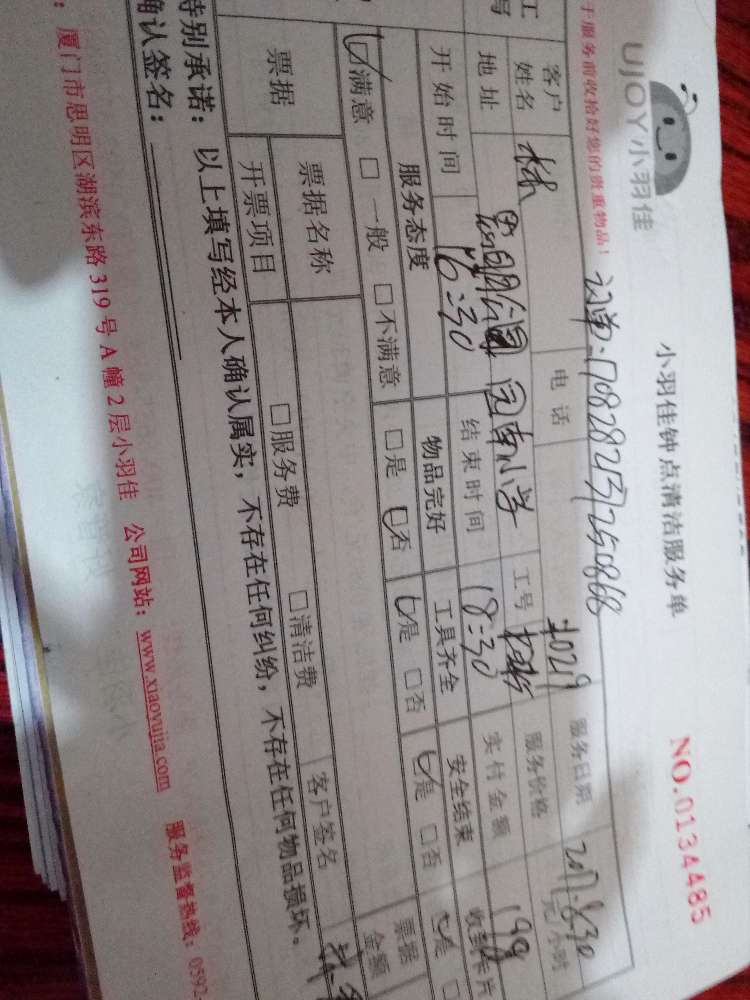 UJOY小羽佳
小羽佳钟点清洁服务单
NO.0134485
于服务前收拾好您的贵重物品！
订单:
客户姓名 林 电话 工号 服务日期 2017.8.30
地址 公园 园南小学 服务价格 元/小时
开始时间 16:30 结束时间 18:30 实付金额 199
服务态度 物品完好 工具齐全 安全结束 收到卡片
☑满意 □一般 □不满意 □是 ☑否 ☑是 □否 ☑是 □否 ☑是 □
票据 票据名称 □服务费 □清洁费 客户签名 票据金额
开票项目
特别承诺：以上填写经本人确认属实，不存在任何纠纷，不存在任何物品损坏。
确认签名：
厦门市思明区湖滨东路319号A幢2层小羽佳 公司网站：www.xiaoyujia.com 服务监督热线：0592-